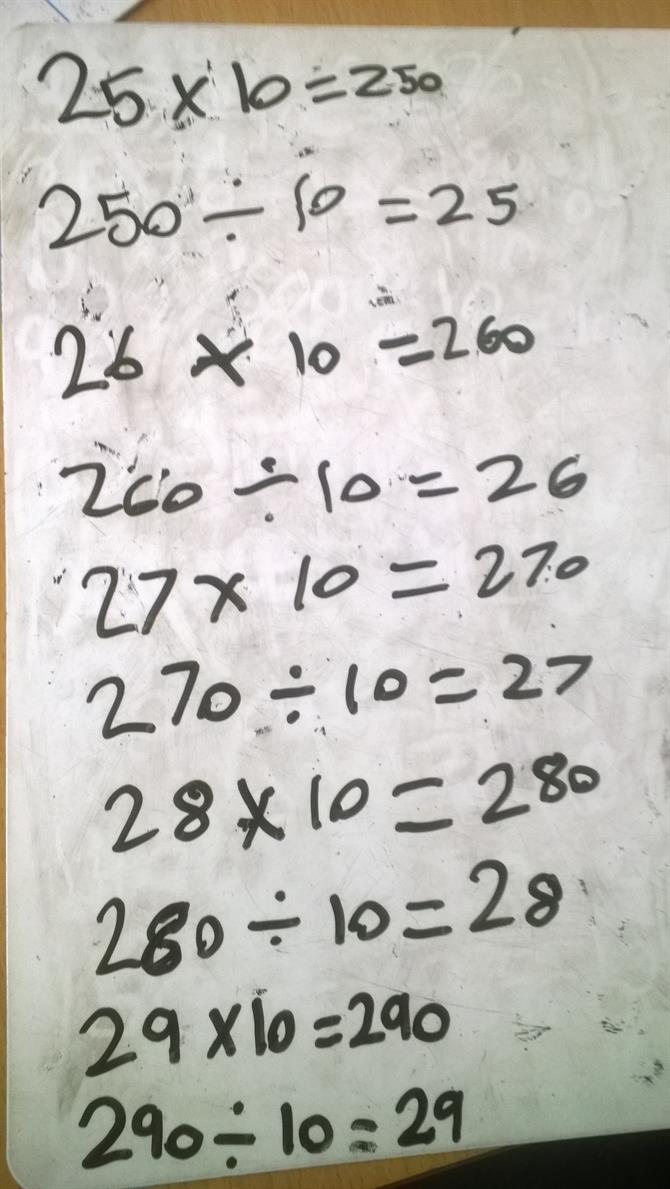 25 × 10 = 250
250 ÷ 10 = 25
26 × 10 = 260
260 ÷ 10 = 26
27 × 10 = 270
270 ÷ 10 = 27
28 × 10 = 280
280 ÷ 10 = 28
29 × 10 = 290
290 ÷ 10 = 29